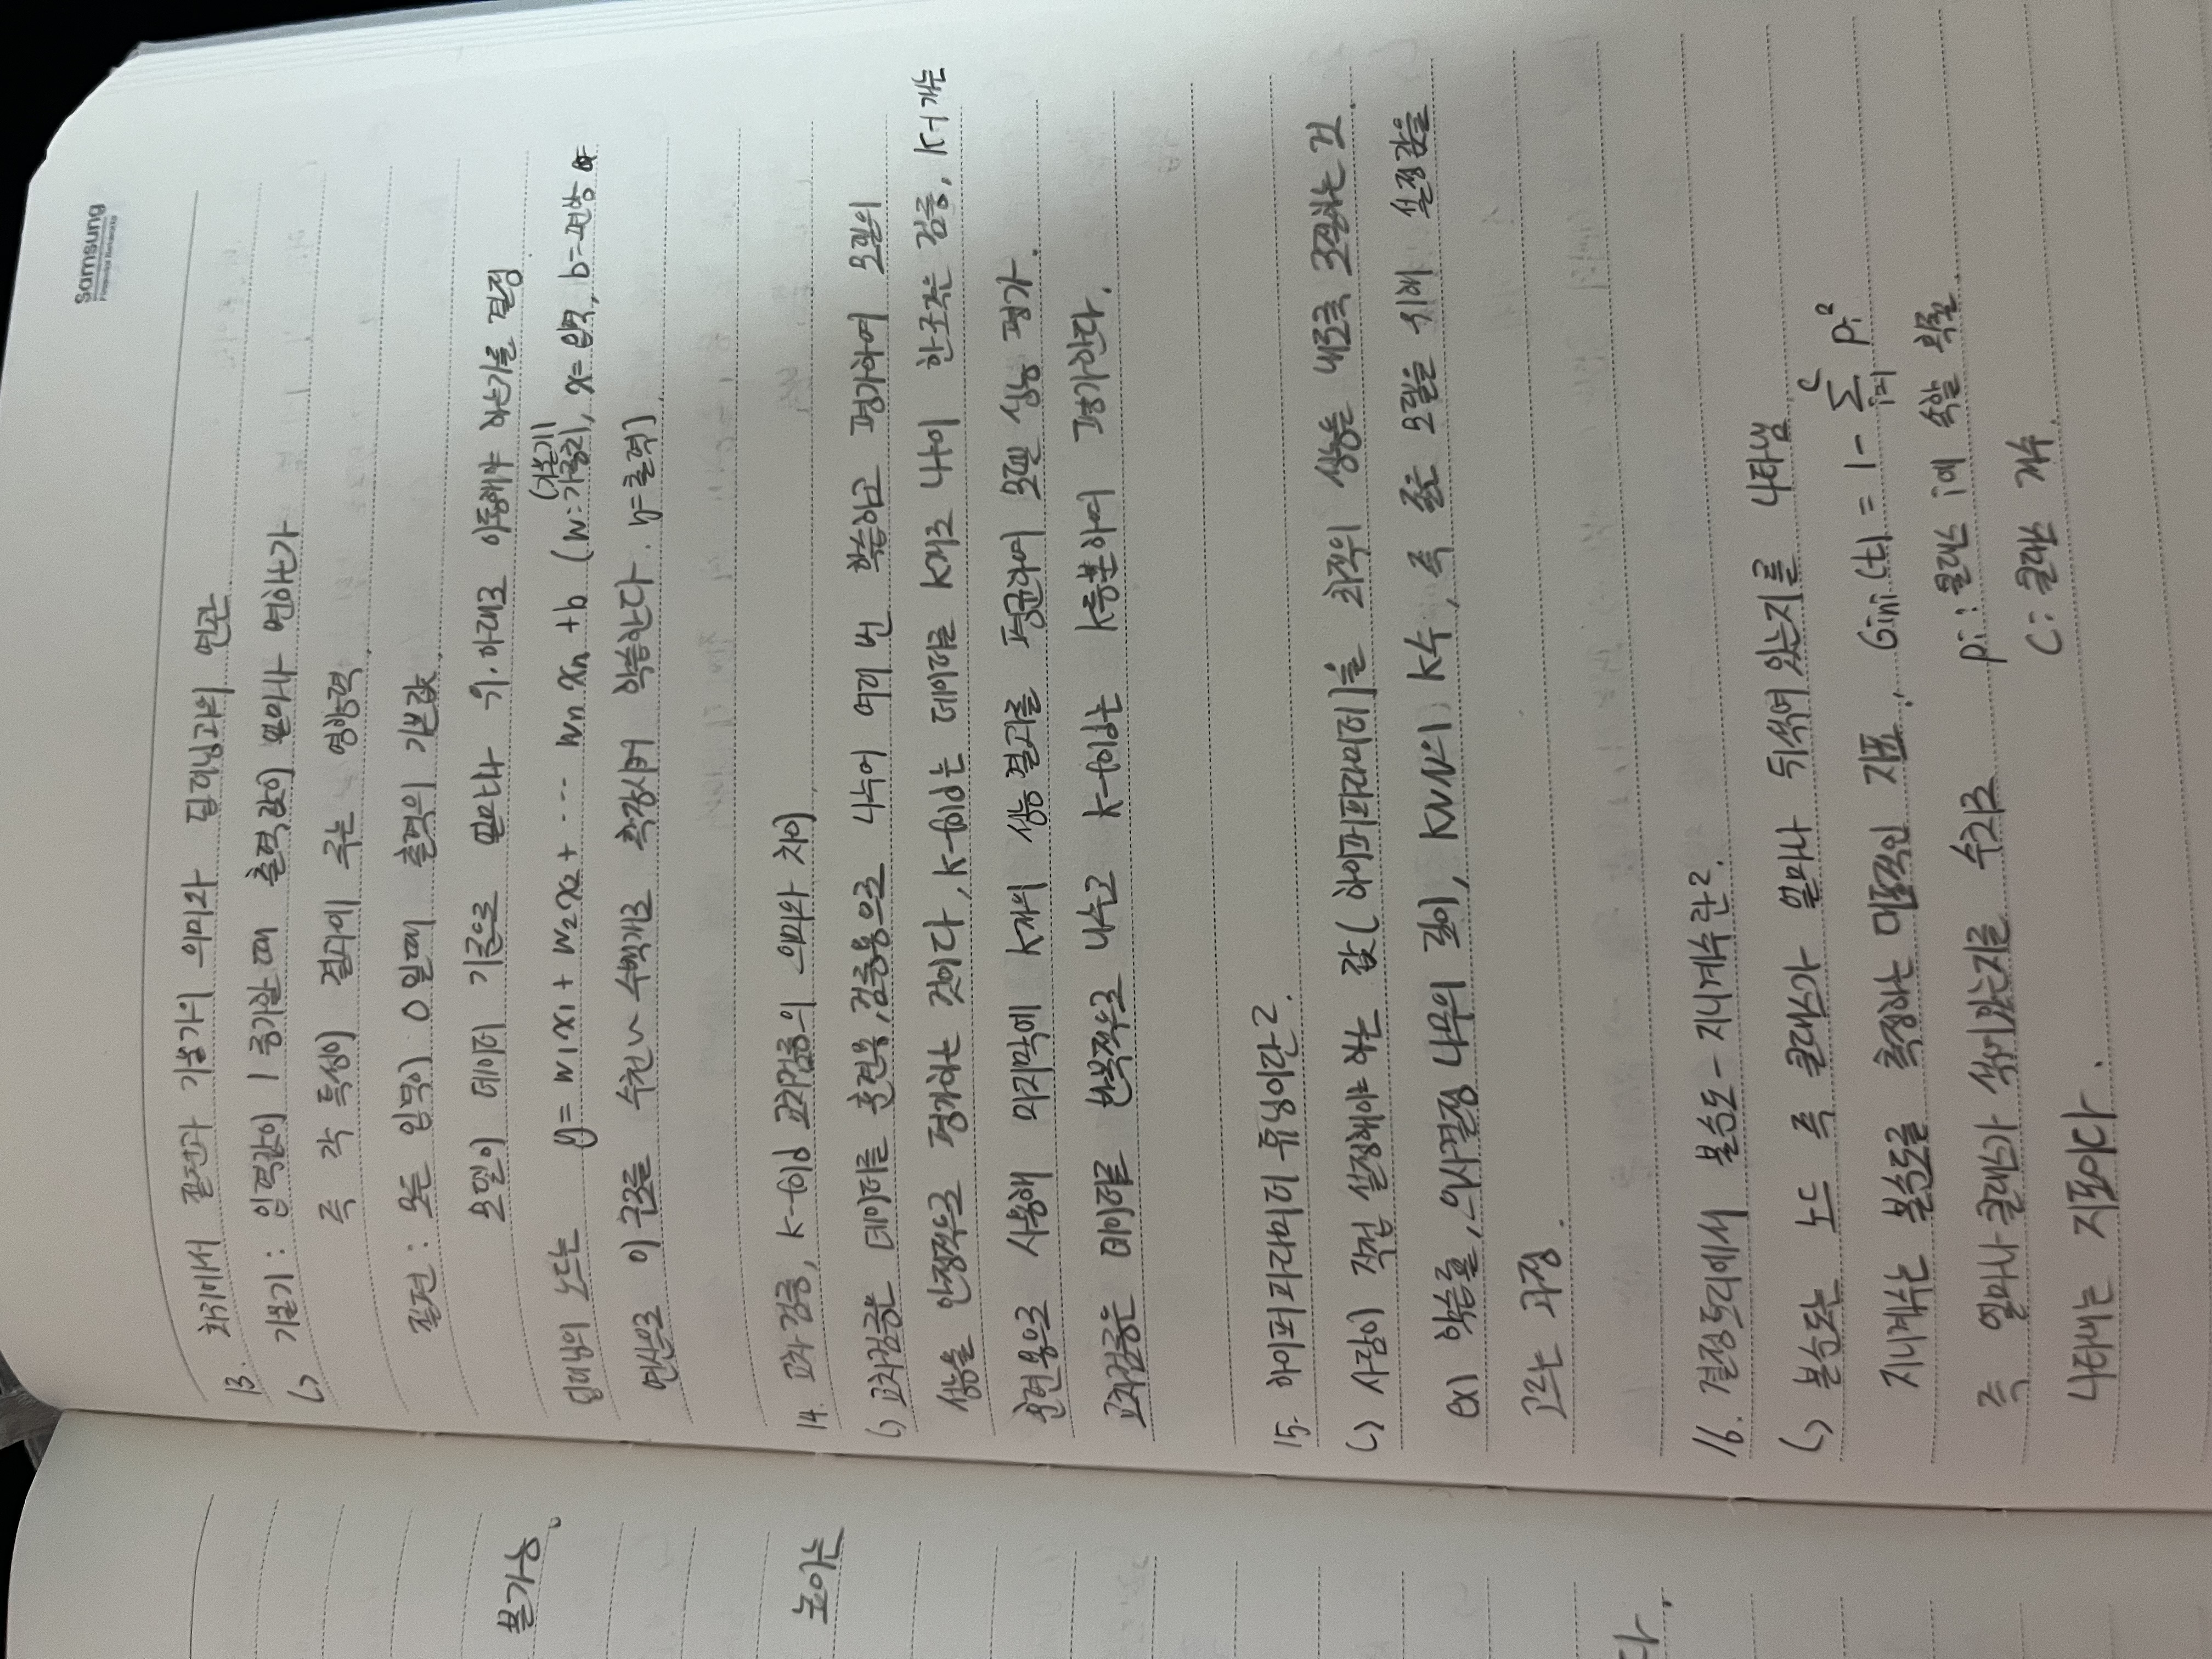 Samsung
Financial Networks
불가능.
높이는
다.
13. 회귀에서 절편과 기울기의 의미와 딥러닝과의 연관.
↳ 기울기 : 입력값이 1 증가할 때 출력값이 얼마나 변하는가
즉 각 특성이 결과에 주는 영향력.
절편 : 모든 입력이 0일때 출력의 기본값.
모델이 데이터 기준으로 얼마나 위·아래로 이동해야 하는가를 결정.
(기울기)
딥러닝의 노드는 y = w1x1 + w2x2 + ··· wnxn + b (w: 가중치, x= 입력, b= 편향
연산으로 이 구조를 수천 ~ 수백개로 확장시켜 학습한다. y= 출력).
14. 교차검증, K-fold 교차검증의 의미와 차이.
↳ 교차검증은 데이터를 훈련용, 검증용으로 나누어 여러 번 학습하고 평가하여 모델의
성능을 안정적으로 평가하는 것이다, K-fold는 데이터를 K개로 나눠 한 조각은 검증, K-1개는
훈련용으로 사용해 마지막에 K개의 성능결과를 평균하여 모델 성능 평가.
교차검증은 데이터를 반복적으로 나누고 K-fold는 K등분하여 평가한다.
15. 하이퍼파라미터 튜닝이란?
↳ 사람이 직접 설정해야 하는 값(하이퍼파라미터)을 최적의 성능을 내도록 조절하는 것.
ex) 학습률, 의사결정 나무의 깊이, KNN의 K수, 즉 좋은 모델을 위해 설정값을
고르는 과정.
16. 결정트리에서 불순도 - 지니계수란?
↳ 불순도는 노드 즉 클래스가 얼마나 뒤섞여 있는지를 나타냄
지니계수는 불순도를 측정하는 대표적인 지표. Gini(t) = 1 - Σ_{i=1}^{C} pi²
즉 얼마나 클래스가 섞여있는지를 수치로 pi : 클래스 i에 속할 확률.
나타내는 지표이다. C : 클래스 개수.